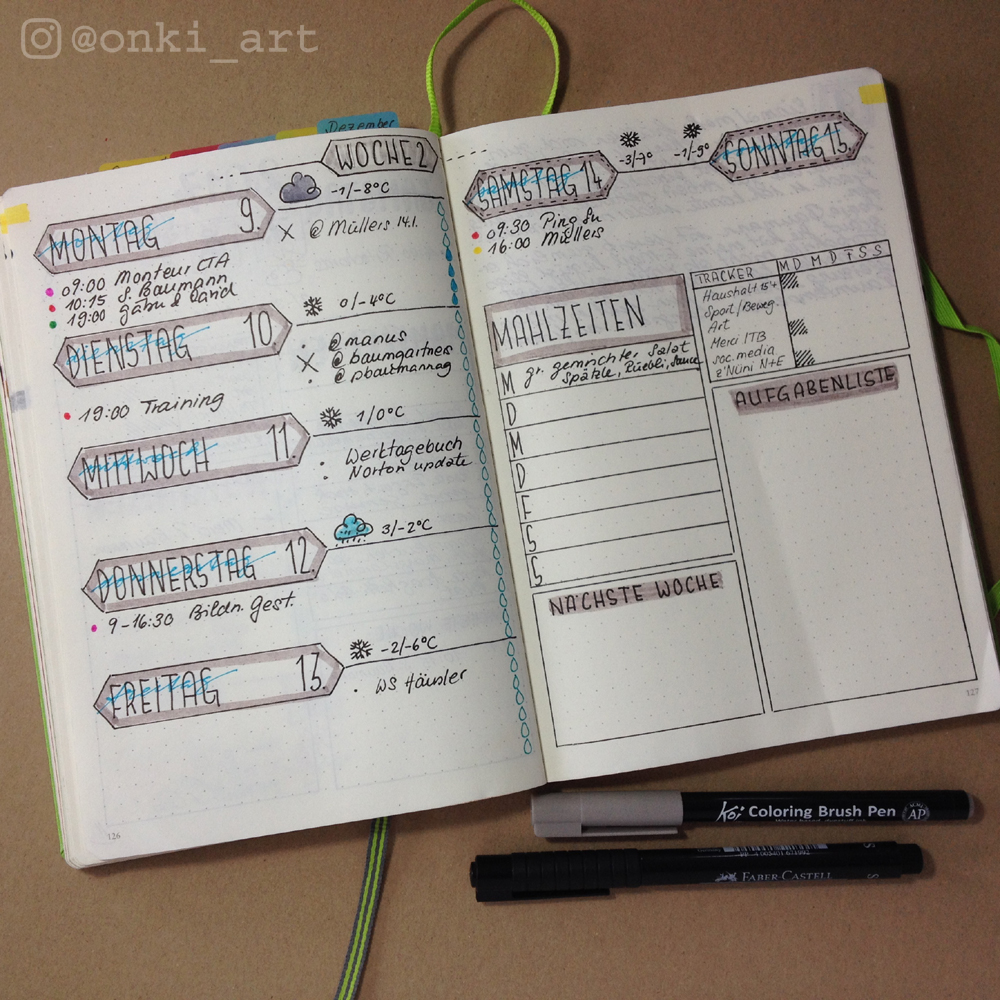 @onki_art
Dezember
WOCHE 2
MONTAG 9.
-1/-8°C
@ Müllers 14.1.
09:00 Monteur CTA
10:15 S. Baumann
19:00 Gäbu & David
DIENSTAG 10
0/-4°C
@ manus
@ baumgartners
@ pbaumannag
19:00 Training
MITTWOCH 11
1/0°C
Werktagebuch
Norton update
DONNERSTAG 12
3/-2°C
9-16:30 Bildn. Gest.
FREITAG 13.
-2/-6°C
WS Häusler
126
SAMSTAG 14
-3/-7°
-1/-9°
SONNTAG 15.
09:30 Ping
16:00 Müllers
MAHLZEITEN
M gr. gemischter Salat
Spätzle, Rüebli, Sauce
D
M
D
F
S
S
NÄCHSTE WOCHE
TRACKER M D M D F S S
Haushalt 15'+
Sport/Beweg.
Art
Merci /TB
soc. media
z'Nüni N+E
AUFGABENLISTE
127
Koi Coloring Brush Pen AP
FABER-CASTELL